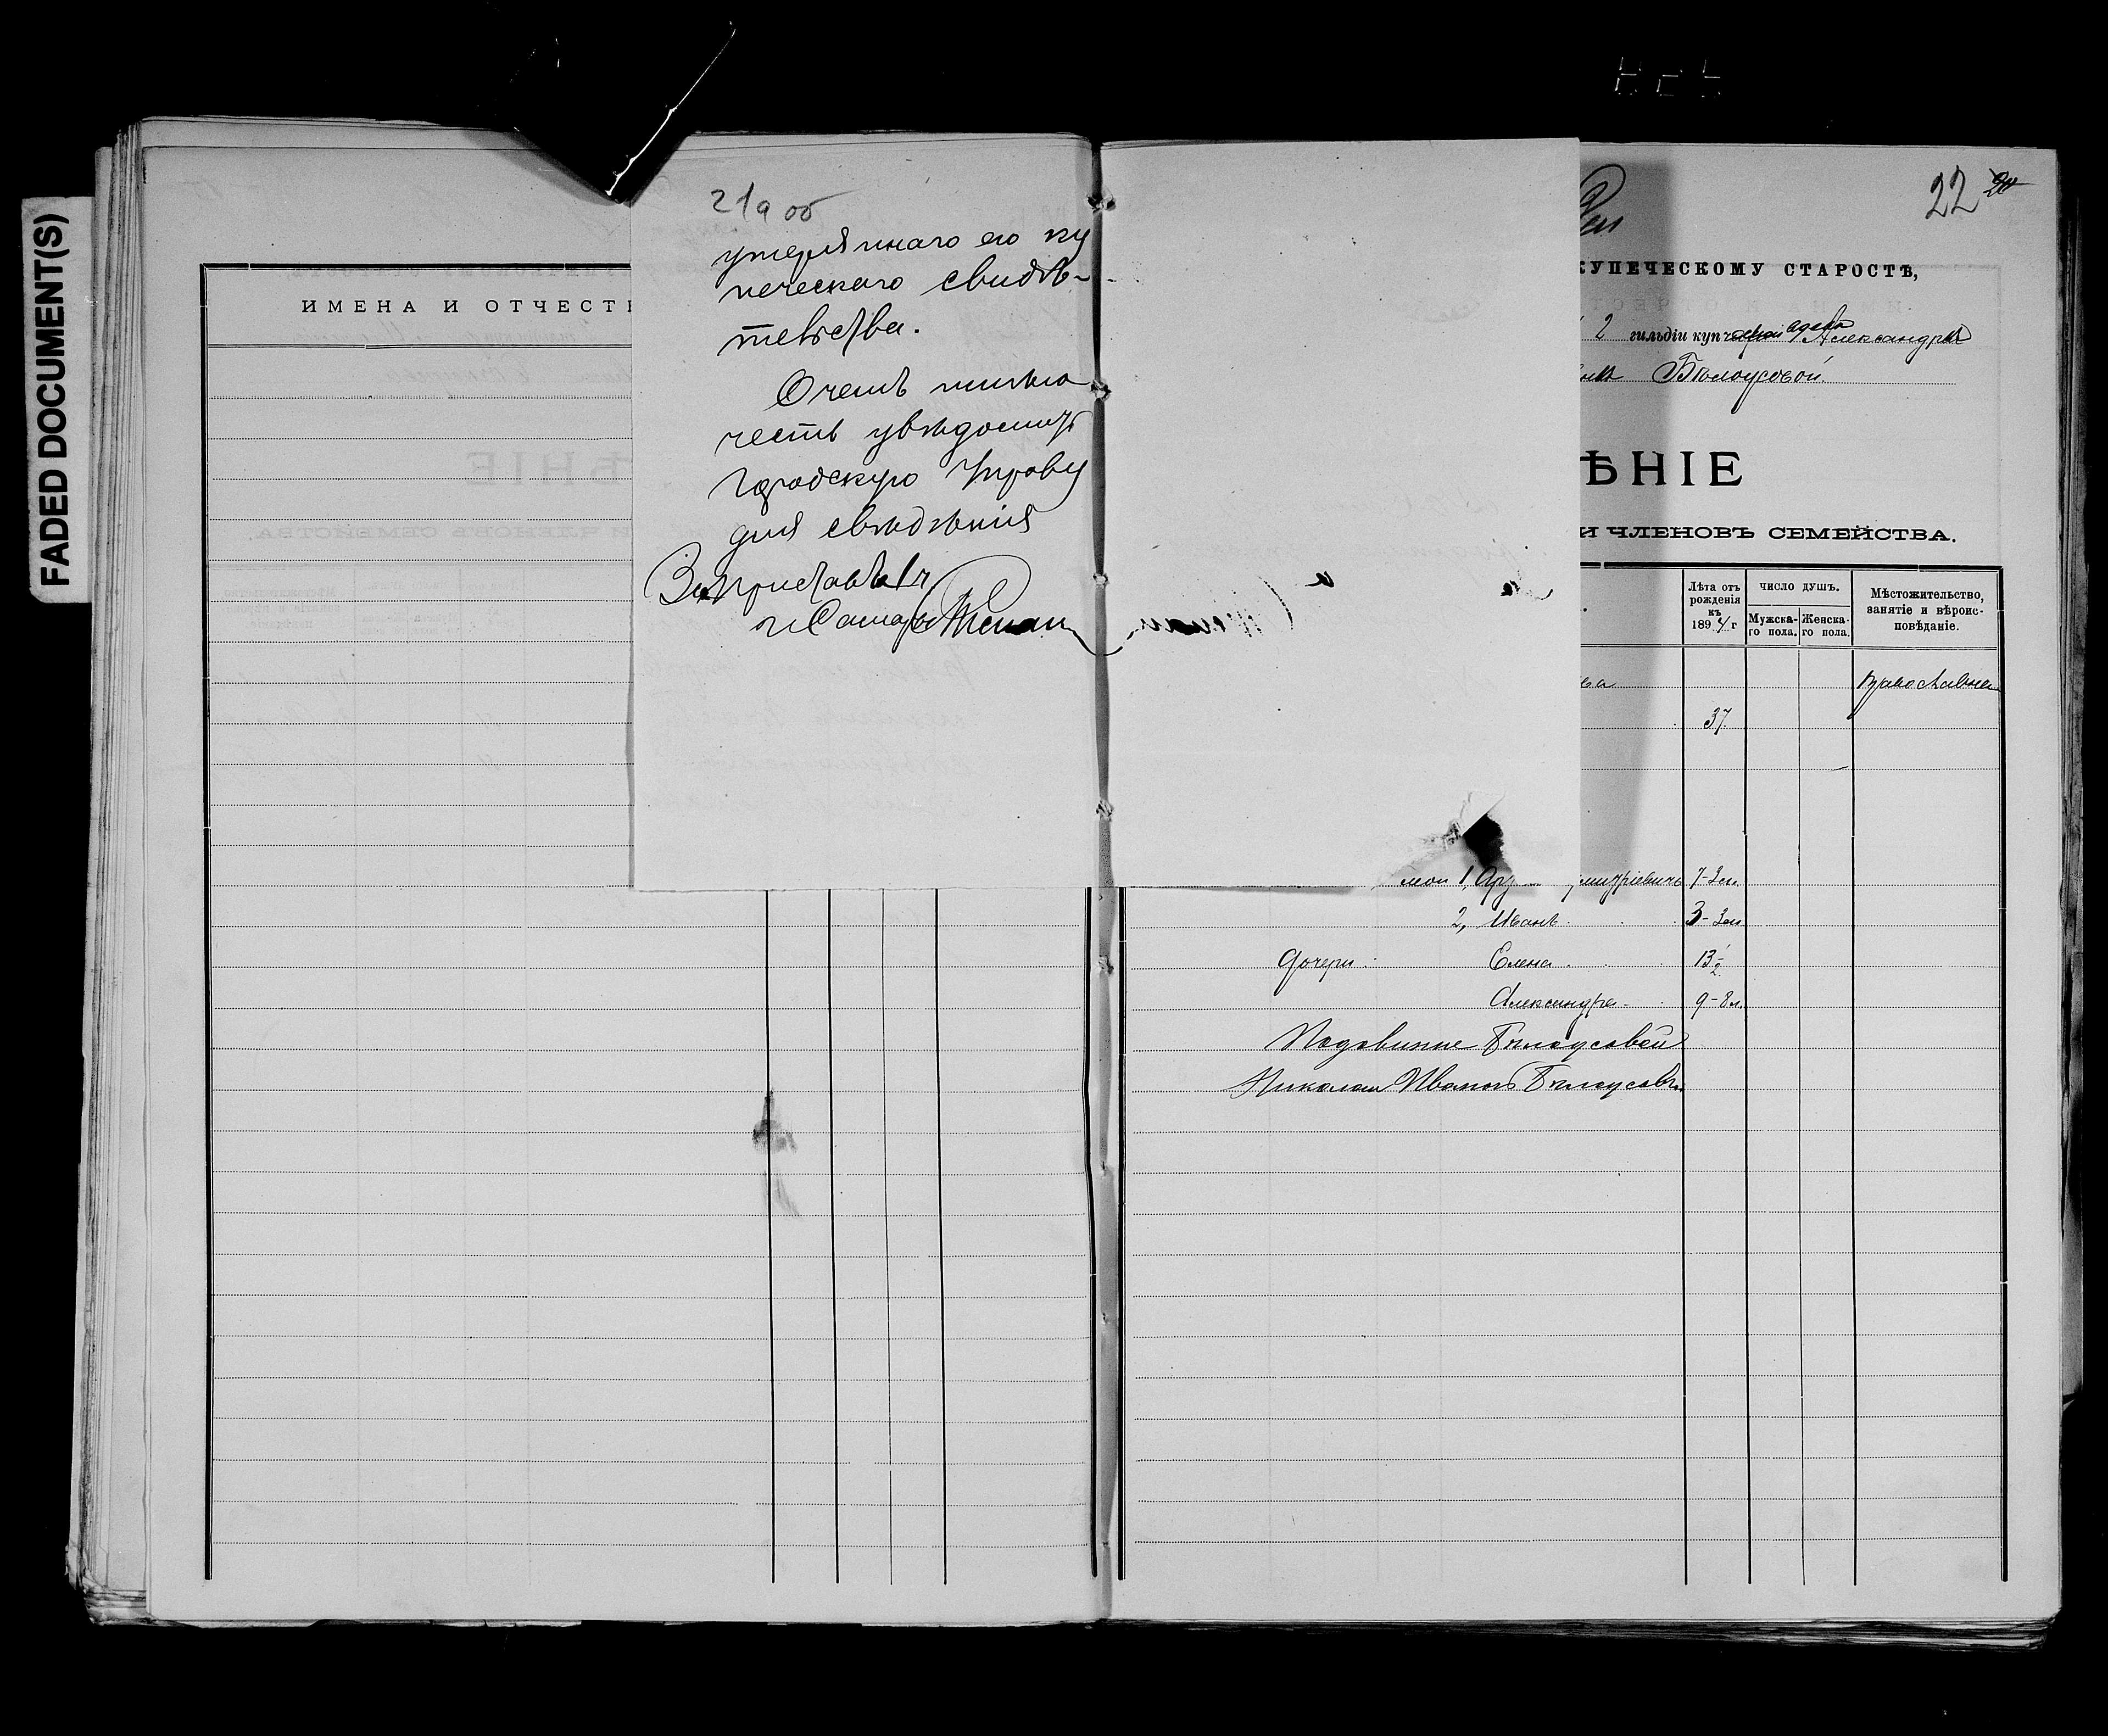 FADED DOCUMENT(S)
ИМЕНА И ОТЧЕСТ
21а об
утеряннаго его ку
печескаго свидѣ-
тельства.
О чемъ имѣю
честь увѣдомить
Городскую Управу
для свѣдѣнія
За Пристава 1 ч
г. Самары
22 20
КУПЕЧЕСКОМУ СТАРОСТѢ,
2 гильдіи купч Александры
Бѣлоусовой.
ѢНІЕ
И ЧЛЕНОВЪ СЕМЕЙСТВА.
Лѣта отъ рожденія къ 1894 г
ЧИСЛО ДУШЪ.
Мужска-го пола.
Женска-го пола.
Мѣстожительство, занятіе и вѣроис-повѣданіе.
ва православна
37
1, митріевичъ 7-
2, Иванъ 3-
дочери: Елена 13-
Александра 9-
Бѣлоусовой
Николай Ивановъ Бѣлоусовъ